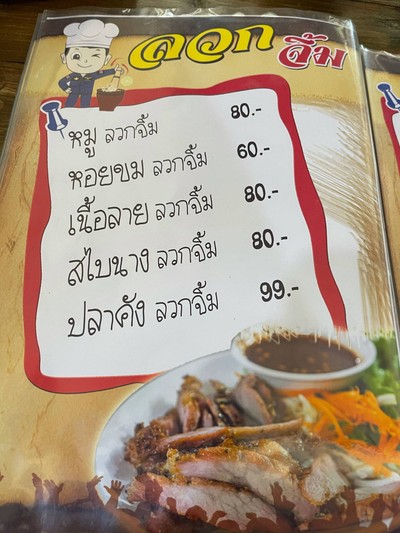 ลวก จิ้ม
หมู ลวกจิ้ม 80.-
หอยขม ลวกจิ้ม 60.-
เนื้อลาย ลวกจิ้ม 80.-
สไบนาง ลวกจิ้ม 80.-
ปลาคัง ลวกจิ้ม 99.-